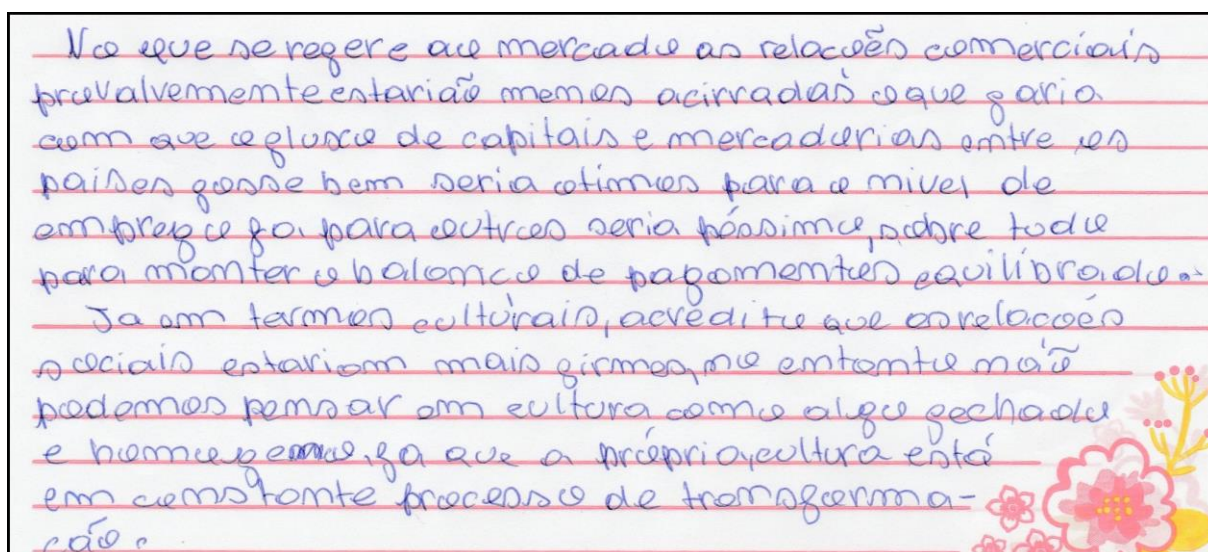 No que se refere ao mercado as relacoẽs comerciais
provalvemente estariaõ menos acirradas o que faria
com que o fluxo de capitais e mercadorias entre os
paises fosse bem seria otimos para o nivel de
emprego ja para outros seria péssimo, sobre todo
para manter o balanco de pagamentos equilibrado.
Ja em termos culturais, acredito que as relacoẽs
sociais estariam mais firmes, no entanto naõ
podemos pensar em cultura como algo fechado
e homogeneo, ja que a própria, cultura está
em constante processo de transforma-
caõ.